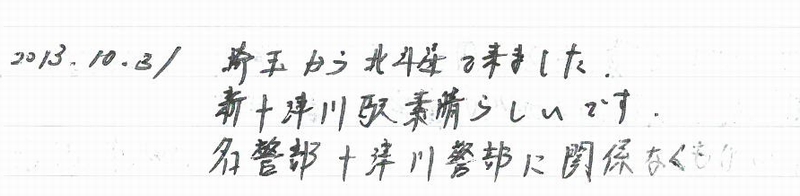 2013.10.31 埼玉から北斗星で来ました.
新十津川駅素晴らしいです.
名警部十津川警部に関係なくも